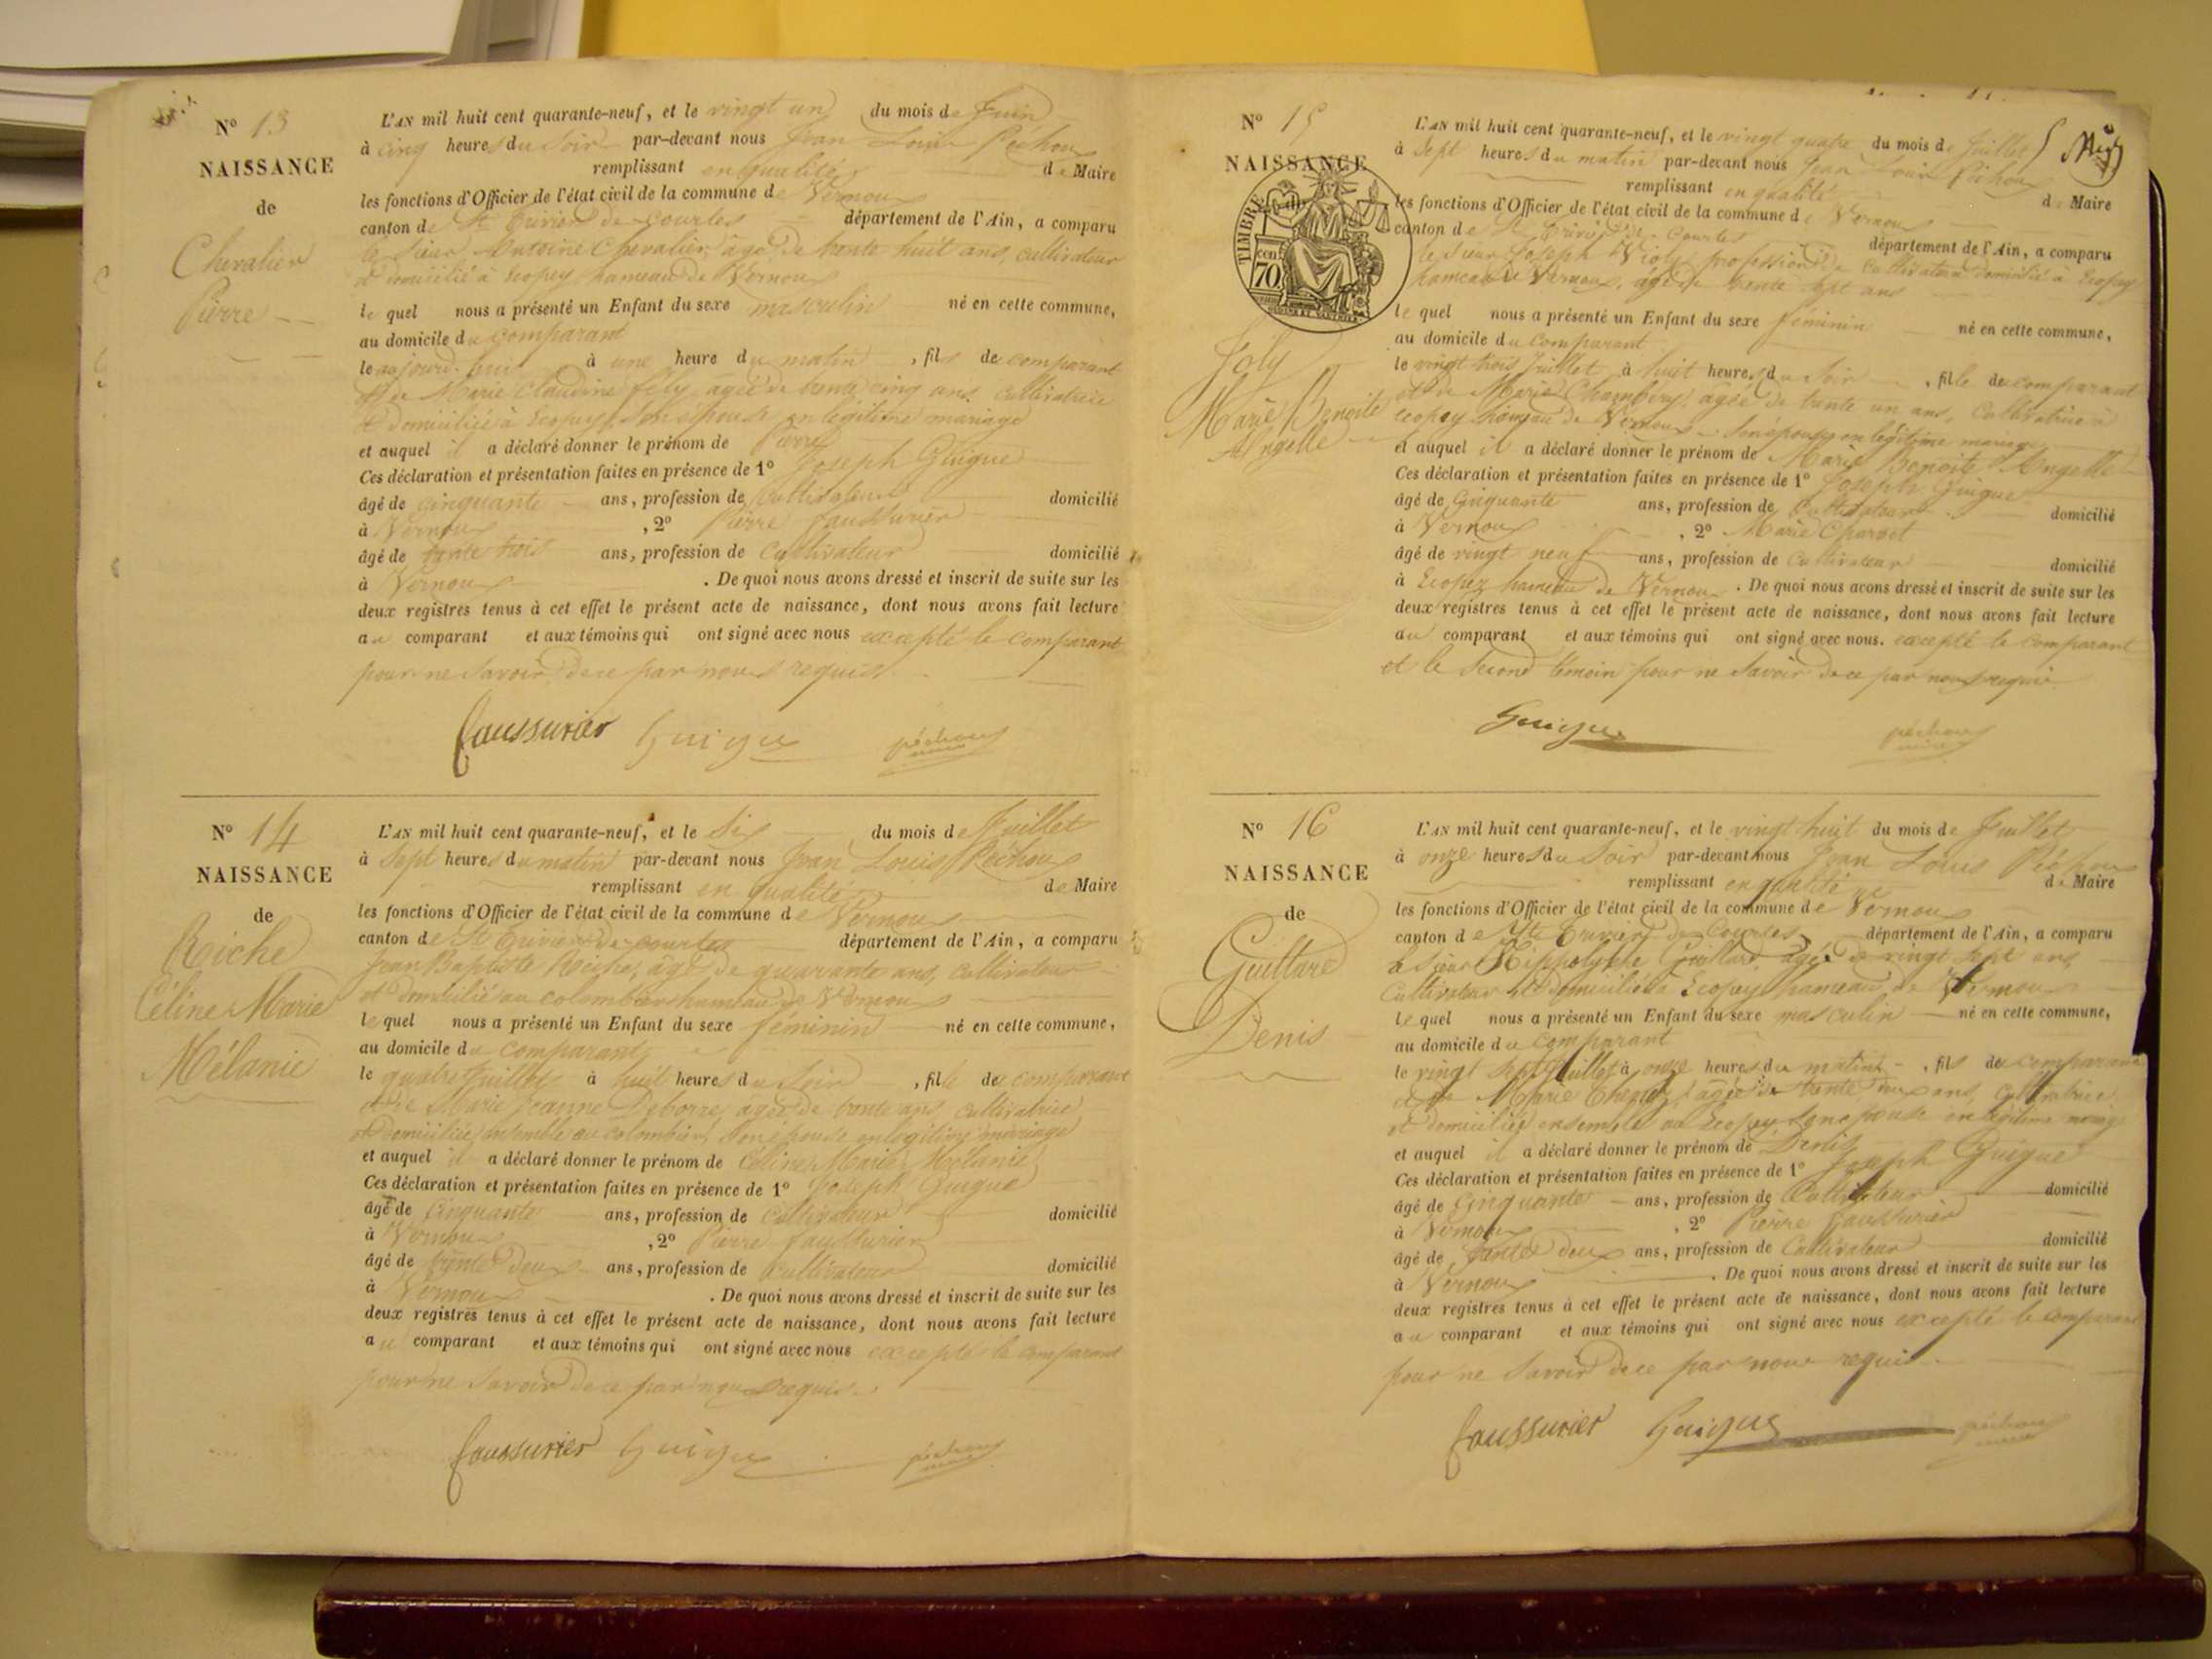 N° 13
NAISSANCE
de
Chevalier
Pierre
L'AN mil huit cent quarante-neuf, et le vingt un du mois de Juin
à cinq heures du Soir par-devant nous Jean Louis Péchoux
remplissant en qualité de Maire
les fonctions d'Officier de l'état civil de la commune de Vernoux
canton de St Trivier de Courtes département de l'Ain, a comparu
le Sieur Antoine Chevalier, âgé de trente huit ans, cultivateur
et domicilié à Ecopey hameau de Vernoux
lequel nous a présenté un Enfant du sexe masculin né en cette commune,
au domicile du comparant
le aujourd'hui à une heure du matin, fils du comparant
et de Marie Claudine Fély agée de trente cinq ans cultivatrice
et domiciliée à Ecopey, son épouse en légitime mariage
et auquel il a déclaré donner le prénom de Pierre
Ces déclaration et présentation faites en présence de 1° Joseph Guigue
âgé de cinquante ans, profession de Cultivateur domicilié
à Vernoux, 2° Pierre Faussurier
âgé de trente trois ans, profession de Cultivateur domicilié
à Vernoux. De quoi nous avons dressé et inscrit de suite sur les
deux registres tenus à cet effet le présent acte de naissance, dont nous avons fait lecture
au comparant et aux témoins qui ont signé avec nous excepté le comparant
pour ne savoir de ce par nous requis.
faussurier Guigue péchoux
N° 14
NAISSANCE
de
Riche
Céline Marie
Mélanie
L'AN mil huit cent quarante-neuf, et le Six du mois de Juillet
à Sept heures du matin par-devant nous Jean Louis Péchoux
remplissant en qualité de Maire
les fonctions d'Officier de l'état civil de la commune de Vernoux
canton de St Trivier de Courtes département de l'Ain, a comparu
Jean Baptiste Riche, âgé de quarante ans, cultivateur
et domicilié au colombier hameau de Vernoux
lequel nous a présenté un Enfant du sexe féminin né en cette commune,
au domicile du comparant
le quatre Juillet à huit heures du Soir, fille du comparant
et de Marie Jeanne Deborre, agée de trente ans, cultivatrice
et domiciliée ensemble au colombier, son épouse en légitime mariage
et auquel il a déclaré donner le prénom de Céline Marie Mélanie
Ces déclaration et présentation faites en présence de 1° Joseph Guigue
âgé de Cinquante ans, profession de Cultivateur domicilié
à Vernoux, 2° Pierre Faussurier
âgé de trente deux ans, profession de Cultivateur domicilié
à Vernoux. De quoi nous avons dressé et inscrit de suite sur les
deux registres tenus à cet effet le présent acte de naissance, dont nous avons fait lecture
au comparant et aux témoins qui ont signé avec nous excepté le comparant
pour ne Savoir de ce par nous requis.
faussurier Guigue péchoux
N° 15
NAISSANCE
TIMBRE
70 cen
Joly
Marie Benoite
Angelle
L'AN mil huit cent quarante-neuf, et le vingt quatre du mois de Juillet
à Sept heures du matin par-devant nous Jean Louis Péchoux
remplissant en qualité de Maire
les fonctions d'Officier de l'état civil de la commune de Vernoux
canton de St Trivier de Courtes département de l'Ain, a comparu
le Sieur Joseph profession de Cultivateur domicilié à Ecopey
hameau de Vernoux, âgé de trente sept ans
lequel nous a présenté un Enfant du sexe féminin né en cette commune,
au domicile du comparant
le vingt trois Juillet à huit heures du Soir, fille du comparant
et de Marie Chambéry, agée de trente un ans, Cultivatrice à
ecopey hameau de Vernoux son épouse en légitime mariage
et auquel il a déclaré donner le prénom de Marie Benoite Angelle
Ces déclaration et présentation faites en présence de 1° Joseph Guigue
âgé de Cinquante ans, profession de Cultivateur domicilié
à Vernoux, 2° Marie Charvet
âgé de vingt neuf ans, profession de Cultivateur domicilié
à Ecopey hameau de Vernoux. De quoi nous avons dressé et inscrit de suite sur les
deux registres tenus à cet effet le présent acte de naissance, dont nous avons fait lecture
au comparant et aux témoins qui ont signé avec nous. excepté le comparant
et le Second témoin pour ne Savoir de ce par nous requis
Guigue péchoux
N° 16
NAISSANCE
de
Guillard
Denis
L'AN mil huit cent quarante-neuf, et le vingt huit du mois de Juillet
à onze heures du Soir par-devant nous Jean Louis Péchoux
remplissant en qualité de Maire
les fonctions d'Officier de l'état civil de la commune de Vernoux
canton de St Trivier de Courtes département de l'Ain, a comparu
le sieur Hippolythe Guillard, âgé de vingt sept ans,
Cultivateur et domicilié à Ecopey hameau de Vernoux
lequel nous a présenté un Enfant du sexe masculin né en cette commune,
au domicile du comparant
le vingt sept Juillet à onze heures du matin, fils du comparant
et de Marie agée de trente deux ans, Cultivatrice
et domiciliée ensemble au Ecopey son épouse en légitime mariage
et auquel il a déclaré donner le prénom de Denis
Ces déclaration et présentation faites en présence de 1° Joseph Guigue
âgé de Cinquante ans, profession de Cultivateur domicilié
à Vernoux, 2° Pierre Faussurier
âgé de trente deux ans, profession de Cultivateur domicilié
à Vernoux. De quoi nous avons dressé et inscrit de suite sur les
deux registres tenus à cet effet le présent acte de naissance, dont nous avons fait lecture
au comparant et aux témoins qui ont signé avec nous excepté le comparant
pour ne Savoir de ce par nous requis.
faussurier Guigue péchoux